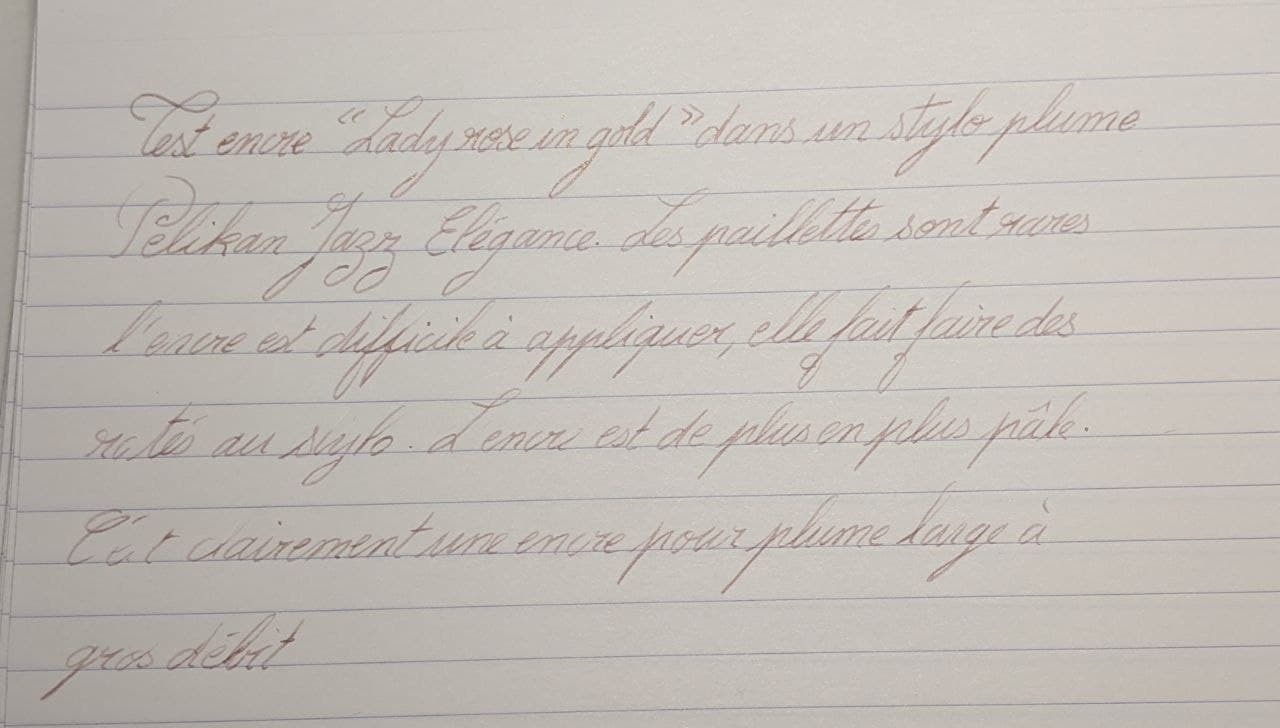 Test encre "Lady rose in gold" dans un stylo plume
Pélikan Jazz Elégance. Les paillettes sont rares
l'encre est difficile à appliquer, elle fait faire des
ratés au stylo. L'encre est de plus en plus pâle.
C'est clairement une encre pour plume large à
gros débit